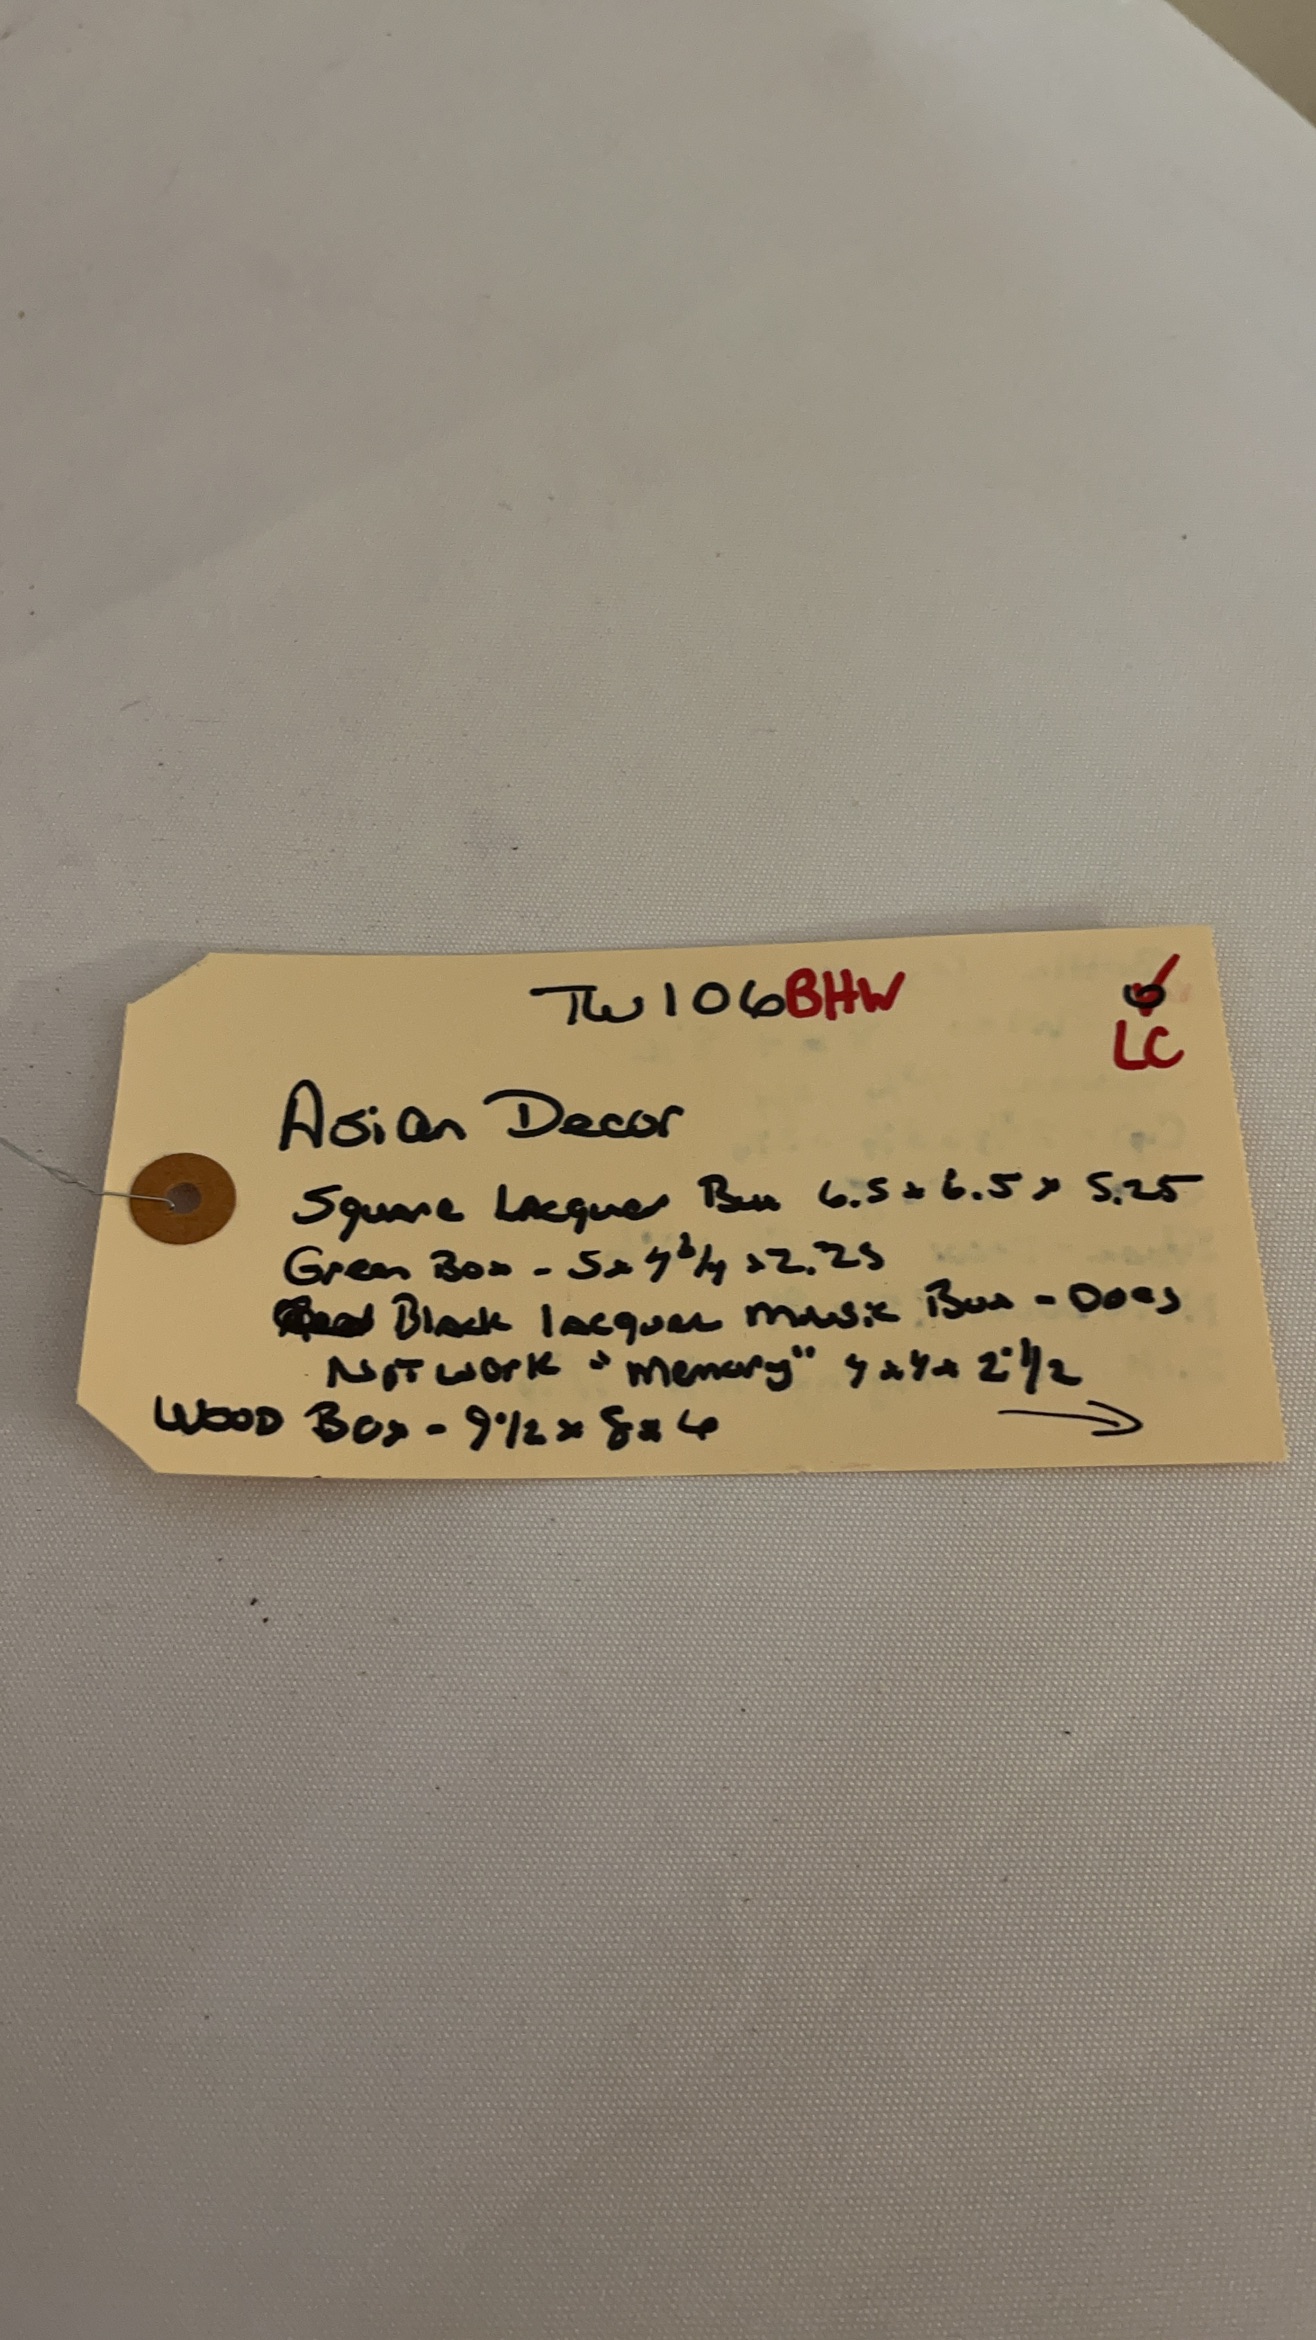 TW106BHW
LC
Asian Decor
Square Lacquer Box 6.5 x 6.5 x 5.25
Green Box - 5 x 4 3/4 x 2.25
Black lacquer music Box - Does
Not work "memory" 4 x 4 x 2 1/2
WOOD Box - 9 1/2 x 8 x 6